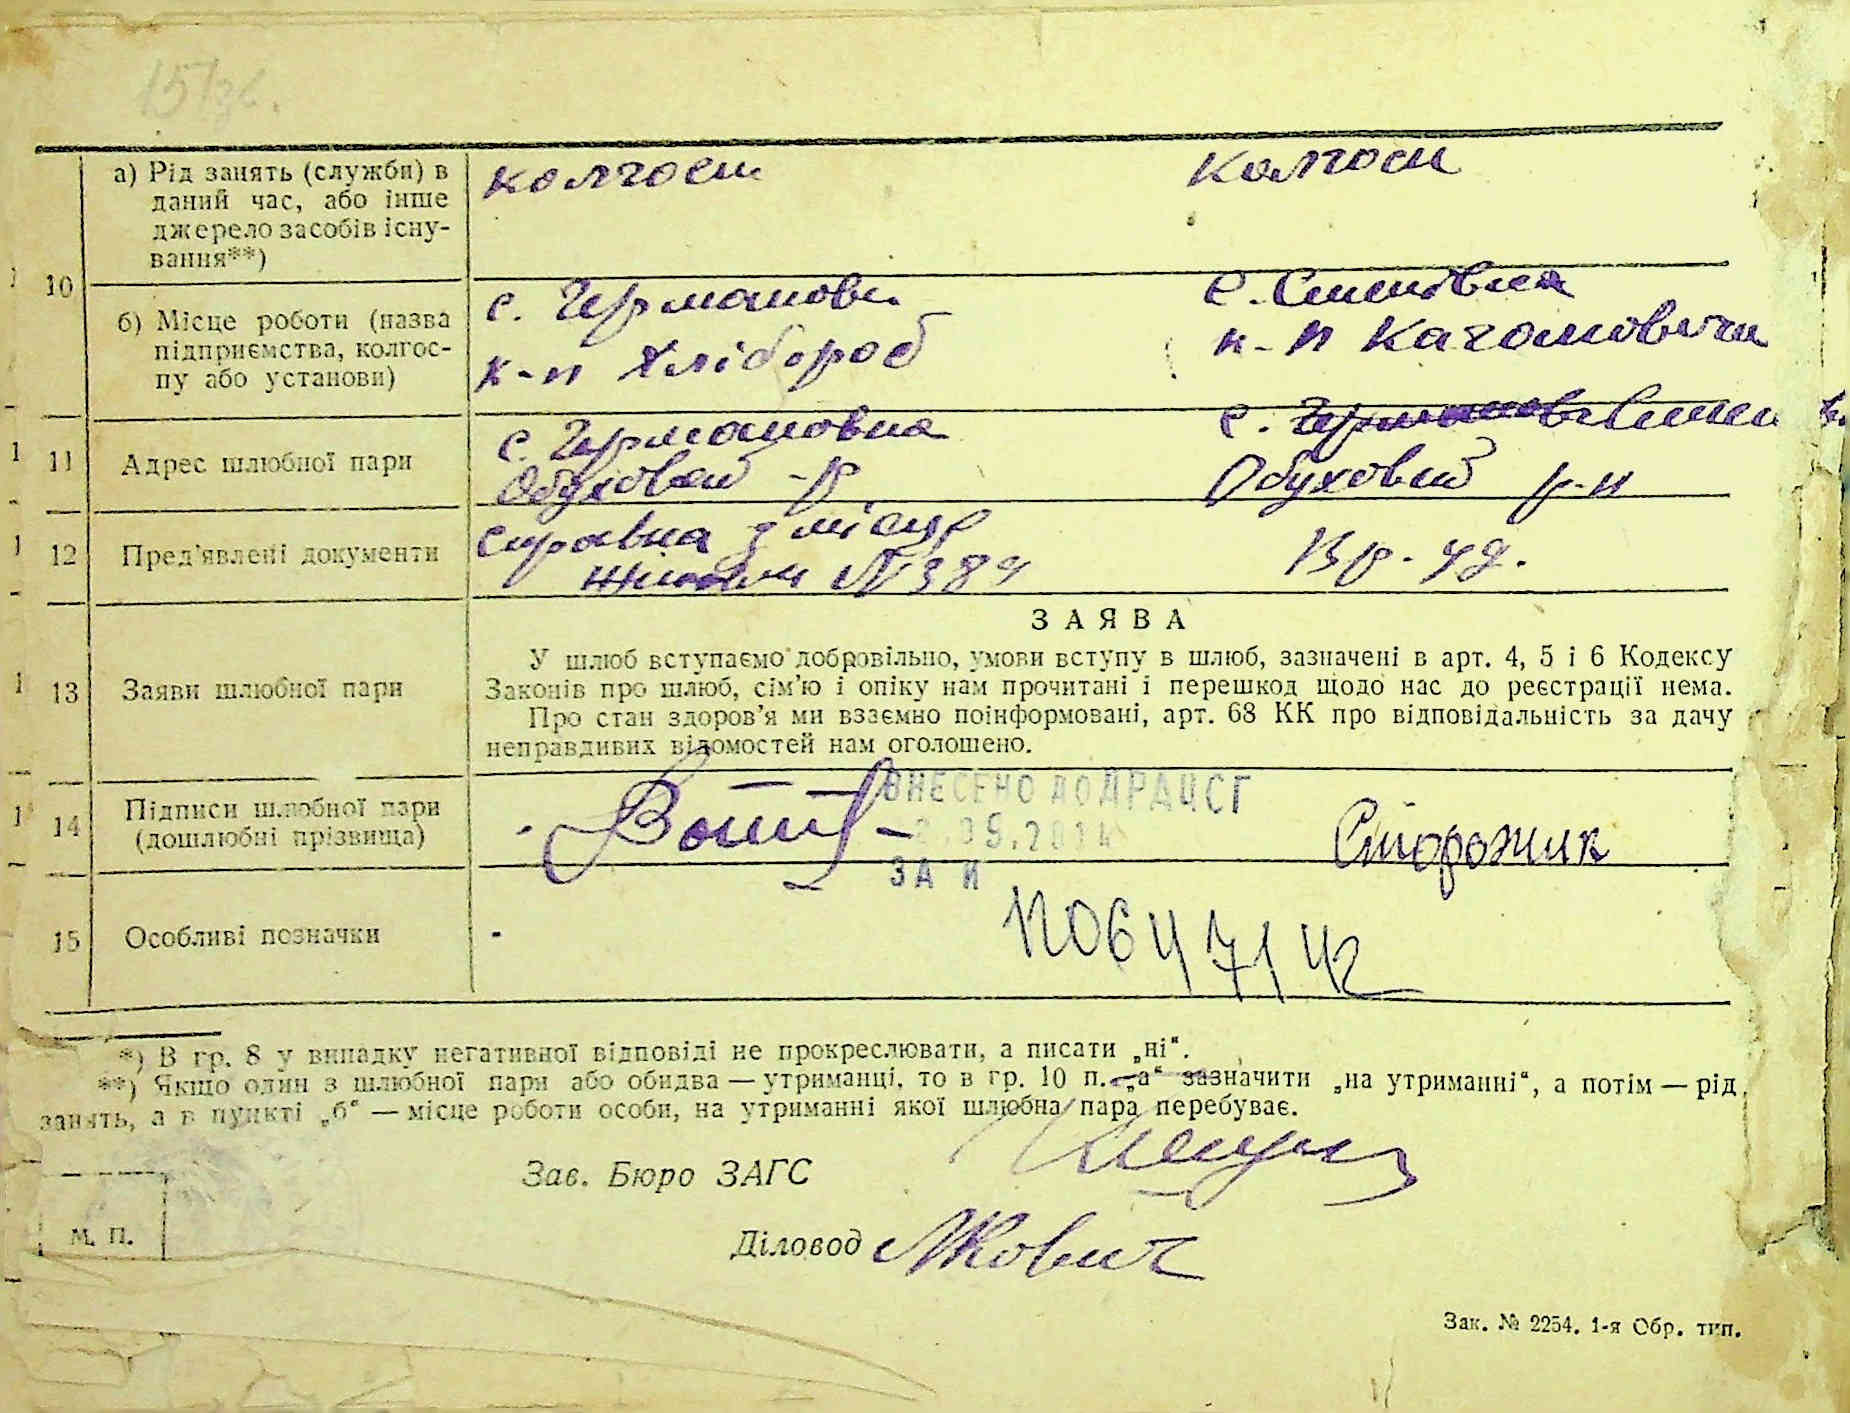 10
а) Рід занять (служби) в
даний час, або інше
джерело засобів існу-
вання**)
колгосп
колгосп
б) Місце роботи (назва
підприємства, колгос-
пу або установи)
с. Германовка
к-п Хлібороб
с.
к-п Кагановича
11
Адрес шлюбної пари
с. Германовка
Обуховский -р
с.
Обуховский р-н
12
Пред'явлені документи
справка з місця
№ 384
Вр. уд.
ЗАЯВА
13
Заяви шлюбної пари
У шлюб вступаємо добровільно, умови вступу в шлюб, зазначені в арт. 4, 5 і 6 Кодексу
Законів про шлюб, сім'ю і опіку нам прочитані і перешкод щодо нас до реєстрації нема.
Про стан здоров'я ми взаємно поінформовані, арт. 68 КК про відповідальність за дачу
неправдивих відомостей нам оголошено.
14
Підписи шлюбної пари
(дошлюбні прізвища)
ВНЕСЕНО ДО ДРАЦСГ
.05.2014
ЗА №
Сторожик
15
Особливі позначки
-
*) В гр. 8 у випадку негативної відповіді не прокреслювати, а писати „ні“.
**) Якщо один з шлюбної пари або обидва — утриманці, то в гр. 10 п. „а“ зазначити „на утриманні“, а потім — рід
занять, а в пункті „б“ — місце роботи особи, на утриманні якої шлюбна пара перебуває.
Зав. Бюро ЗАГС
М. П.
Діловод
Зак. № 2254. 1-я Обр. тип.